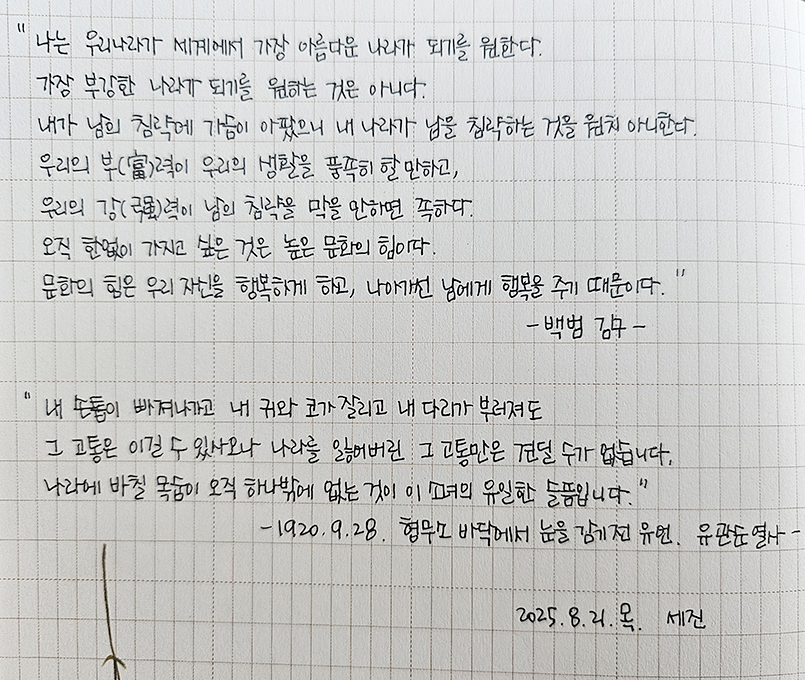 "나는 우리나라가 세계에서 가장 아름다운 나라가 되기를 원한다.
가장 부강한 나라가 되기를 원하는 것은 아니다.
내가 남의 침략에 가슴이 아팠으니 내 나라가 남을 침략하는 것을 원치 아니한다.
우리의 부(富)력이 우리의 생활을 풍족히 할 만하고,
우리의 강(强)력이 남의 침략을 막을 만하면 족하다.
오직 한없이 가지고 싶은 것은 높은 문화의 힘이다.
문화의 힘은 우리 자신을 행복하게 하고, 나아가선 남에게 행복을 주기 때문이다."
-백범 김구-
"내 손톱이 빠져나가고 내 귀와 코가 잘리고 내 다리가 부러져도
그 고통은 이길 수 있사오나 나라를 잃어버린 그 고통만은 견딜 수가 없습니다.
나라에 바칠 목숨이 오직 하나밖에 없는 것이 이 소녀의 유일한 슬픔입니다."
-1920.9.28. 형무소 바닥에서 눈을 감기전 유언. 유관순 열사-
2025.8.21.목. 세진